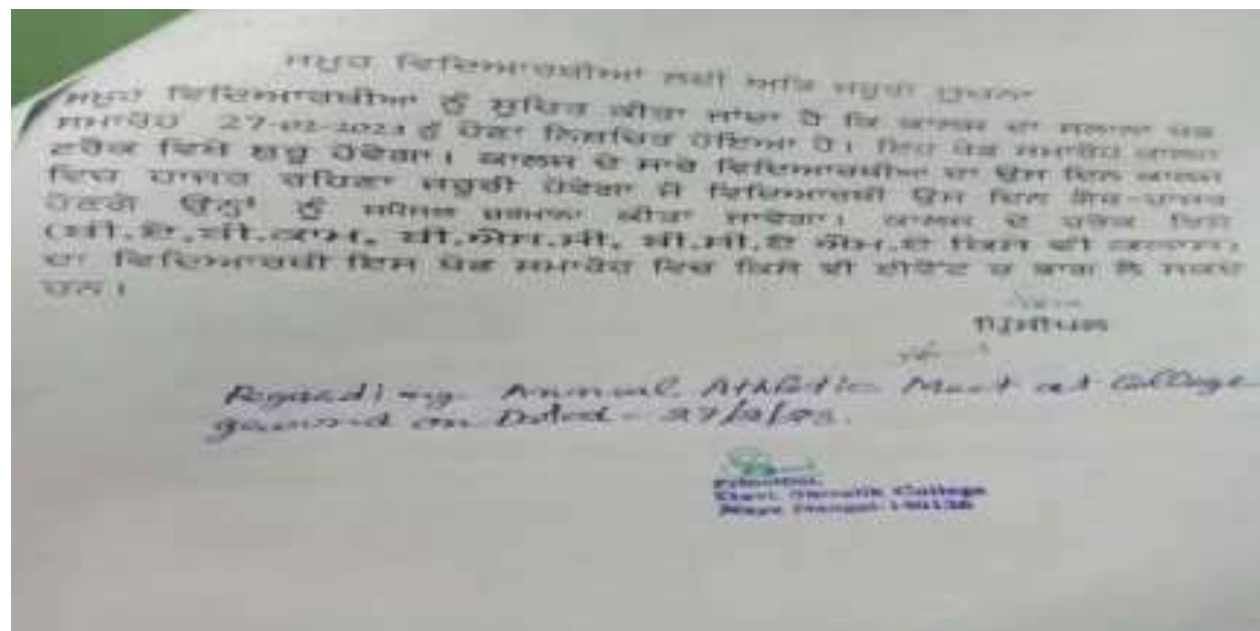 ਸਮੂਹ ਵਿਦਿਆਰਥੀਆਂ ਲਈ ਅਤਿ ਜਰੂਰੀ ਸੂਚਨਾ
ਸਮੂਹ ਵਿਦਿਆਰਥੀਆਂ ਨੂੰ ਸੂਚਿਤ ਕੀਤਾ ਜਾਂਦਾ ਹੈ ਕਿ ਕਾਲਜ ਦਾ ਸਲਾਨਾ ਖੇਡ
ਸਮਾਰੋਹ 27-02-2023 ਨੂੰ ਹੋਣਾ ਨਿਸ਼ਚਿਤ ਹੋਇਆ ਹੈ। ਇਹ ਖੇਡ ਸਮਾਰੋਹ ਕਾਲਜ
ਟਰੈਕ ਵਿਖੇ ਸ਼ੁਰੂ ਹੋਵੇਗਾ। ਕਾਲਜ ਦੇ ਸਾਰੇ ਵਿਦਿਆਰਥੀਆਂ ਦਾ ਉਸ ਦਿਨ ਕਾਲਜ
ਵਿਚ ਹਾਜਰ ਰਹਿਣਾ ਜਰੂਰੀ ਹੋਵੇਗਾ ਜੋ ਵਿਦਿਆਰਥੀ ਉਸ ਦਿਨ ਗੈਰ-ਹਾਜਰ
ਹੋਣਗੇ ਉਨ੍ਹਾਂ ਨੂੰ ਜੁਰਮਾਨਾ ਕੀਤਾ ਜਾਵੇਗਾ। ਕਾਲਜ ਦੇ ਹਰੇਕ ਵਿਸ਼ੇ
(ਬੀ.ਏ,ਬੀ.ਕਾਮ, ਬੀ.ਐਸ.ਸੀ, ਬੀ.ਸੀ.ਏ ਐਮ.ਏ ਕਿਸੇ ਵੀ ਕਲਾਸ)
ਦਾ ਵਿਦਿਆਰਥੀ ਇਸ ਖੇਡ ਸਮਾਰੋਹ ਵਿਚ ਕਿਸੇ ਵੀ ਈਵੈਂਟ ਚ ਭਾਗ ਲੈ ਸਕਦੇ
ਹਨ।
ਪ੍ਰਿੰਸੀਪਲ
Regarding Annual Athletic Meet at College
ground on Dated - 27/2/23.
Principal
College